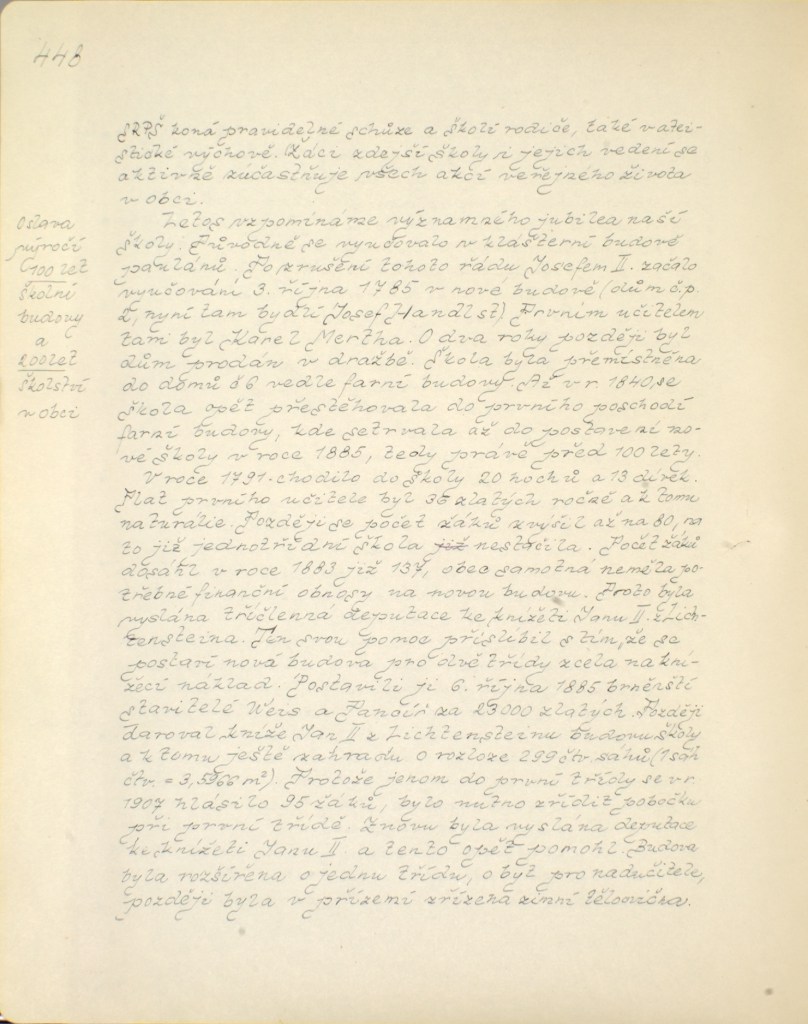 448
SRPŠ koná pravidelné schůze a školí rodiče, také v atei-
stické výchově. Žáci zdejší školy i jejich vedení se
aktivně zúčastňuje všech akcí veřejného života
v obci.
Oslava
výročí
100 let
školní
budovy
a
200 let
školství
v obci
Letos vzpomínáme významného jubilea naší
školy. Původně se vyučovalo v klášterní budově
paulánů. Po zrušení tohoto řádu Josefem II. začalo
vyučování 3. října 1785 v nové budově (dům č.p.
2, nyní tam bydlí Josef Handl st.) Prvním učitelem
tam byl Karel Mertha. O dva roky později byl
dům prodán v dražbě. Škola byla přemístněna
do domů č 6 vedle farní budovy. Až v r. 1840, se
škola opět přestěhovala do prvního poschodí
farní budovy, kde setrvala až do postavení no-
vé školy v roce 1885, tedy právě před 100 lety.
V roce 1791 chodilo do školy 20 hochů a 13 dívek.
Plat prvního učitele byl 36 zlatých ročně a k tomu
naturálie. Později se počet žáků zvýšil až na 80, na
to již jednotřídní škola již nestačila. Počet žáků
dosáhl v roce 1883 již 137, obec samotná neměla po-
třebné finanční obnosy na novou budovu. Proto byla
vyslána tříčlenná deputace ke knížeti Janu II. z Lich-
tensteina. Ten svou pomoc přislíbil s tím, že se
postaví nová budova pro dvě třídy zcela na kní-
žecí náklad. Postavili ji 6. října 1885 brněnští
stavitelé Weis a Panoíř za 23 000 zlatých. Později
daroval kníže Jan II z Lichtensteinu budovu školy
a k tomu ještě zahradu o rozloze 299 čtv. sáhů (1 sáh
čtv. = 3,5966 m²). Protože jenom do první třídy se v r.
1907 hlásilo 95 žáků, bylo nutno zřídit pobočku
při první třídě. Znovu byla vyslána deputace
ke knížeti Janu II. a tento opět pomohl. Budova
byla rozšířena o jednu třídu, o byt pro nadučitele,
později byla v přízemí zřízena zimní tělocvična.